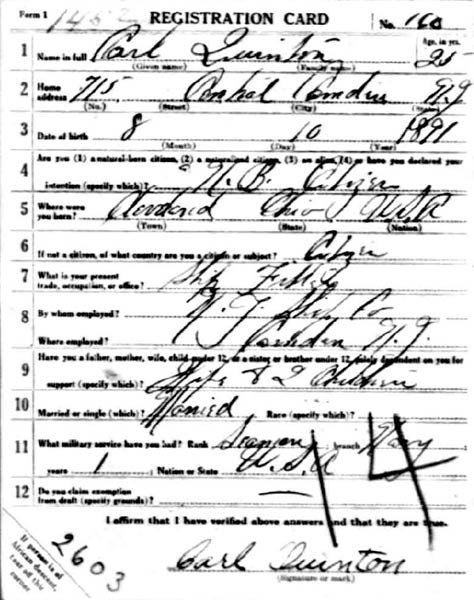 Form 1 1452 REGISTRATION CARD No. 160
1 Name in full Carl Quinton Age, in yrs. 25
(Given name) (Family name)
2 Home address 715 Central Camden N.J.
(No.) (Street) (City) (State)
3 Date of birth 8 10 1891
(Month) (Day) (Year)
4 Are you (1) a natural-born citizen, (2) a naturalized citizen, (3) an alien, (4) or have you declared your
intention (specify which)? N. B. Citizen
5 Where were you born? Cleveland Ohio USA
(Town) (State) (Nation)
6 If not a citizen, of what country are you a citizen or subject? Citizen
7 What is your present trade, occupation, or office? Ship Fitter
8 By whom employed? N. Y. Ship Co
Where employed? Camden N. J.
9 Have you a father, mother, wife, child under 12, or a sister or brother under 12, solely dependent on you for
support (specify which)? Wife & 2 Children
10 Married or single (which)? Married Race (specify which)?
11 What military service have you had? Rank Seaman ; branch Navy
years 1 ; Nation or State U.S.A
12 Do you claim exemption from draft (specify grounds)? —
14
I affirm that I have verified above answers and that they are true.
If person is of
African descent,
tear off this
corner
2603
Carl Quinton
(Signature or mark)